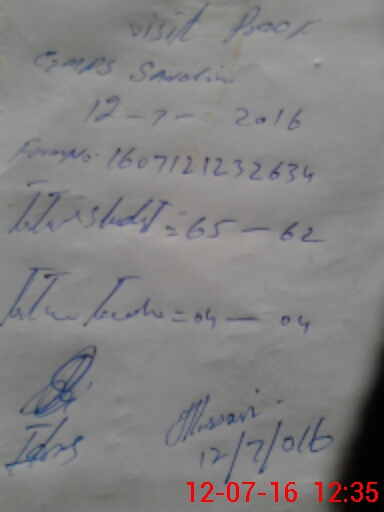 visit Proof
GMPS Sawalin
12-7-2016
Form No. 1607121232634
Total Students = 65 — 62
Total Teacher = 04 — 04
Idrees
12/7/016
12-07-16 12:35